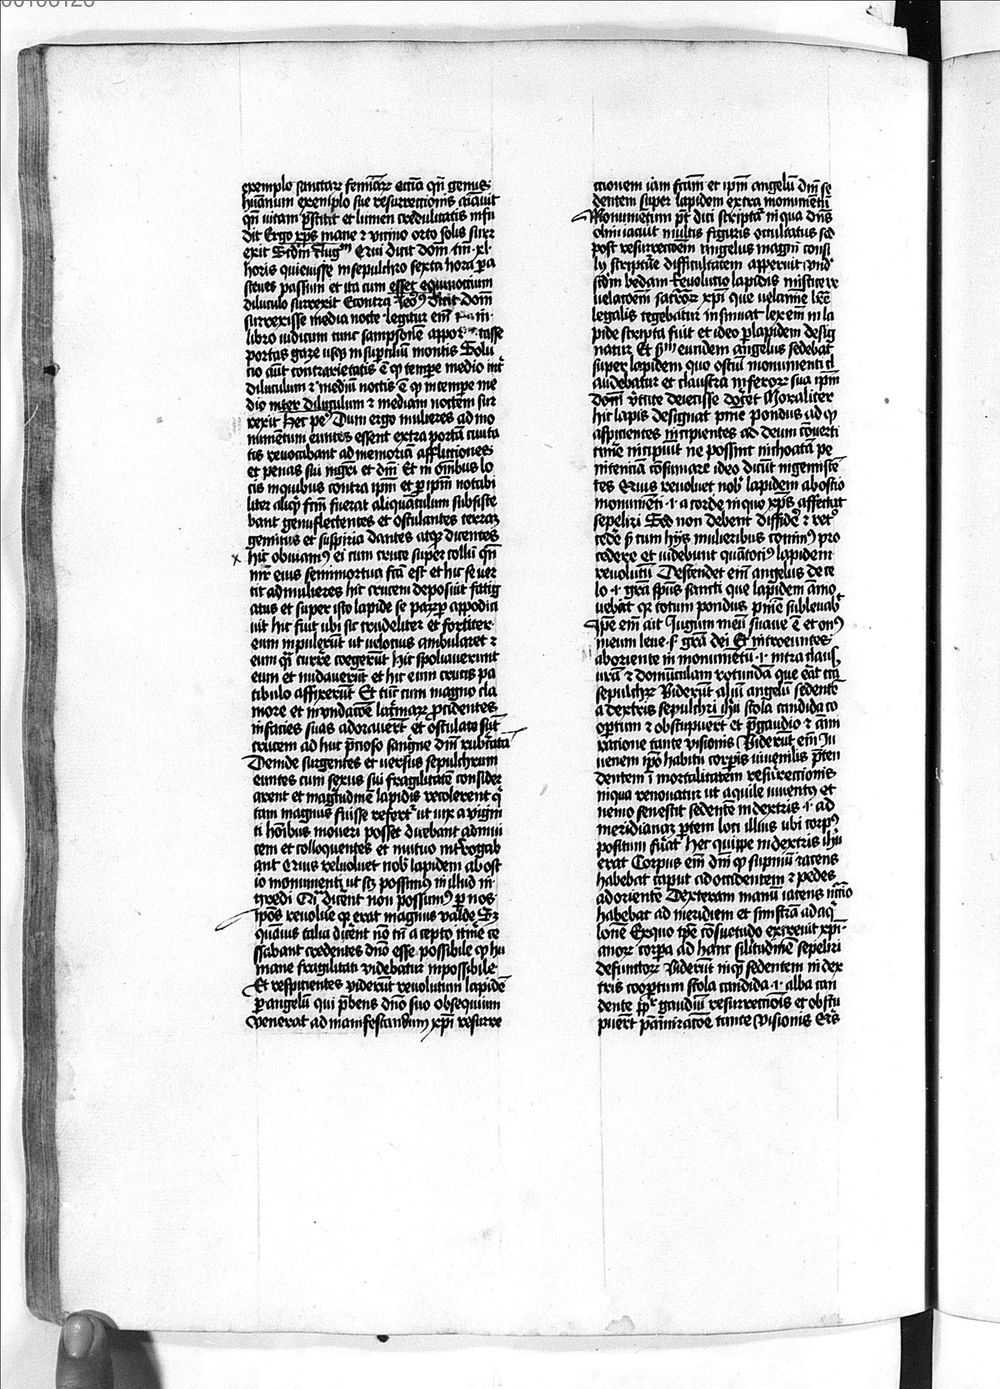 exemplo sanctarum feminarum Etiam qn̄ genus
humanum exemplo sue resurrectionis
qn̄ vitam prestitit et lumen credulitatis infu
dit Ergo xp̄s mane ⁊ vicino orto solis surr
exit Scd̄m Aug Erui dicit dom̄ .xl.
horis quievisse in sepulchro sexta hora
passum et ita cum esset equinoctium
diluculo surrexit Econtra Ieo⁹ dicit dom̄
surrexisse media nocte legitur em̄
libro iudicum tunc sampsonē
portas gaze usq̄ in supciliū montis Solu
cio aūt contrarietatis ē ꝙ tempe medio int̄
diluculum ⁊ mediū noctis ē ꝙ in tempe me
dio inter diluculum ⁊ mediam noctem sur
rexit Hec pe⁹ Dum ergo mulieres ad mo
numentum euntes essent extra portā civita
tis revocabant ad memoriā afflictiones
et penas sui mgr̄i et dn̄i Et in om̄ibus lo
cis in quibus contra ip̄m et p ip̄m notabi
liter aliq̄ fcm̄ fuerat aliquātulum subsiste
bant genuflectentes et osculantes terram
gemitus et suspiria dantes atq̄ dicentes
x hic obviam⁹ ei cum cruce super collū qn̄
mr̄ eius semimortua fcā est et hic se ver
tit ad mulieres hic crucem deposuit fatig
atus et super isto lapide se appodia
vit hic fuit ubi sic crudeliter et fortiter
eum inpulerūt ut velocius ambularet ⁊
eum currere coegerūt hic spoliaverunt
eum et nudaverūt et hic eum crucis pa
tibulo affixerūt Et tūc cum magno cla
more et inundacōe lacrimarum procidentes
in facies suas adoraverūt et osculate sūt
crucem ad huc p̄cioso sanguine dn̄i
Deinde surgentes et versus sepulchrum
euntes cum sexus sui fragilitatē consider
arent et magitudinē lapidis recolerent
tam magnus fuisse refert̄ ut vix a vigin
ti hoībus moveri posset dicebant ad invi
cem et colloquentes et mutuo introgab
ant Quis revolvet nob̄ lapidem ab ost
io monumenti ut possim⁹ in illud in
gredi dicent non possum⁹ p nos
ip̄os revolve erat magnus valde
quāvis talia dicent nō tn̄ a cepto itine ce
ssabant credentes dn̄o esse possibile ꝙ hu
mane fragilitati videbatur inpossibile
Et respicientes viderūt revolutum lapidē
p angelū qui p̄bens dn̄o suo obsequium
venerat ad manifestandum xp̄i resurre
ctionem iam fcām et ip̄m angelū dn̄i se
dentem super lapidem extra monumentū
Monumentum p̄t dici scriptā in qua dn̄s
olim iacuit multis figuris occultatus sed
post resurrectōem angelus magni consi
lii scripture difficultatem apperuit Vnd̄
scdm bedam Revolucio lapidis mistice re
velacōem sacrōr xp̄i que velamine lr̄e
legalis tegebatur insinuat lex em̄ in la
pide scripta fuit et ideo p lapidem desig
natur Et eundem angelus sedebat
super lapidem quo ostiū monumenti cl
audebatur et claustra inferorum sua ip̄m
dom̄ v̄tute deiecisse docet Moraliter
hic lapis designat pnīe pondus ad
aspicientes incipientes ad deum cōverti
timē incipiūt ne possint inchoatā pe
nitenciā cōsumare ideo dicūt
tes Quis revolvet nob̄ lapidem ab ostio
monumēti .i. a corde in quo xp̄s affectat
sepeliri Sed non debent diffidē ⁊ ret⁰
cedē s; cum hiis mulieribus comin⁹ pro
cedere et videbunt lapidem
revolutū Descendet em̄ angelus de ce
lo .i. grā spūs sancti que lapidem amo
vebat q̄ totum pondus pnīe
Ipe em̄ ait Iugum meū suave ē et on⁹
meum leve .s. grā dei Et introeuntes
ab oriente in monumētū .i. intra claus
⁊ domūculam rotundā que
sepulchrum Viderūt aliū angelū sedente
a dextris sepulchri ihū stola candida co
optum ⁊ obstupuerūt et p gaudio ⁊ am
iracione tante visionis Viderūt em̄ iu
venem ipō habitu corpis iuvenilis
dentem i mortalitatem resurrectionis
in qua renovatur ut aquile iuventus et
nemo senescit sedente in dextris .i. ad
meridianā ptem loci illius ubi corp⁹
positum fuāt hec quippe in dextris ihū
erat Corpus em̄ dn̄i ꝙ supinū iacens
habebat caput ad occidentem ⁊ pedes
ad oriente Dexteram manū iacens
habebat ad meridiem et sinistrā ad aq
lone Ex quo cōsuetudo xpi
anor corpa ad hanc silitudīnē sepeliri
defunctor Viderūt sedentem in dex
tris coopertum stola candida .i. alba can
dente ppr̄ gaudiū resurrectionis et obstu
puerūt p amiracōe tante visionis